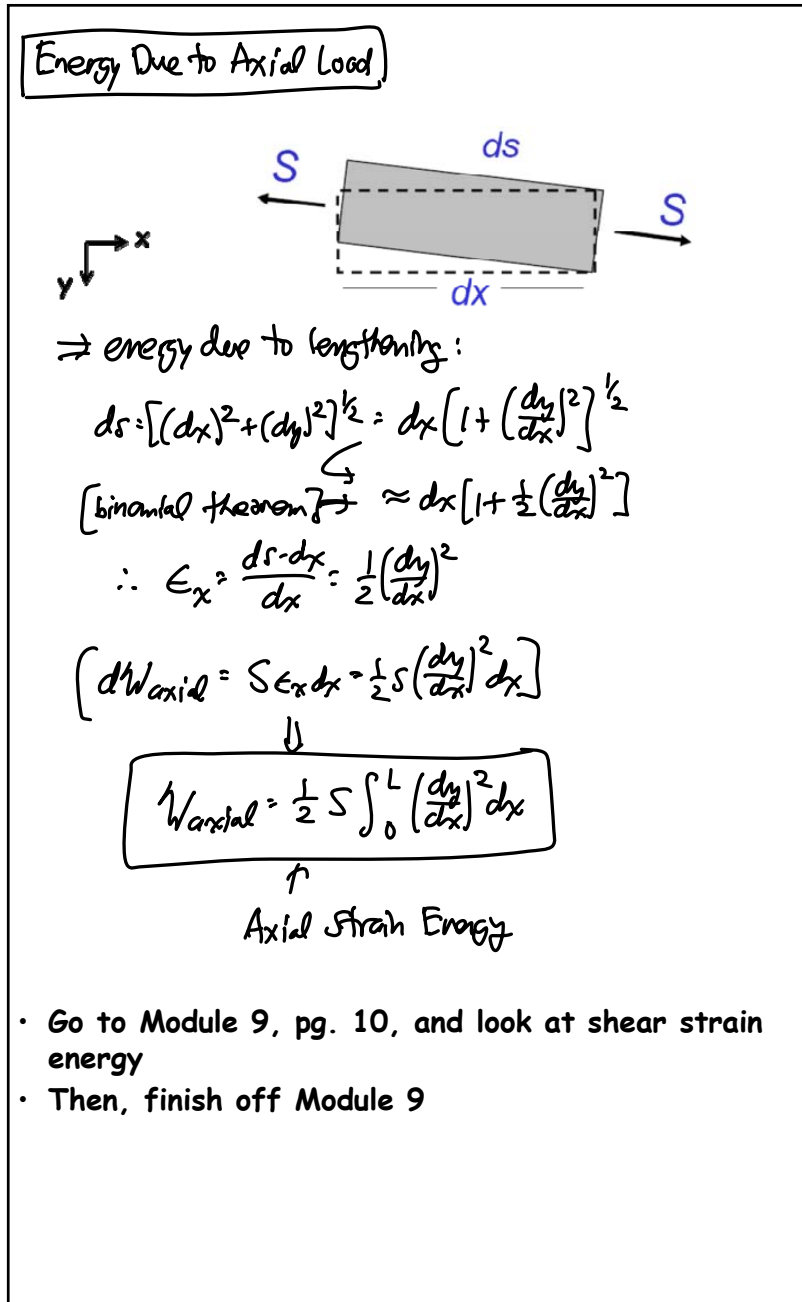 Energy Due to Axial Load
S
ds
S
x
y
dx
⇒ energy due to lengthening:
ds = [(dx)² + (dy)²]^{1/2} = dx [1 + (dy/dx)²]^{1/2}
[binomial theorem] → ≈ dx [1 + 1/2 (dy/dx)²]
∴ ϵₓ = (ds-dx)/dx = 1/2 (dy/dx)²
[dW_axial = S ϵₓ dx = 1/2 S (dy/dx)² dx]
⇓
W_axial = 1/2 S ∫₀^L (dy/dx)² dx
↑
Axial Strain Energy
· Go to Module 9, pg. 10, and look at shear strain
energy
· Then, finish off Module 9